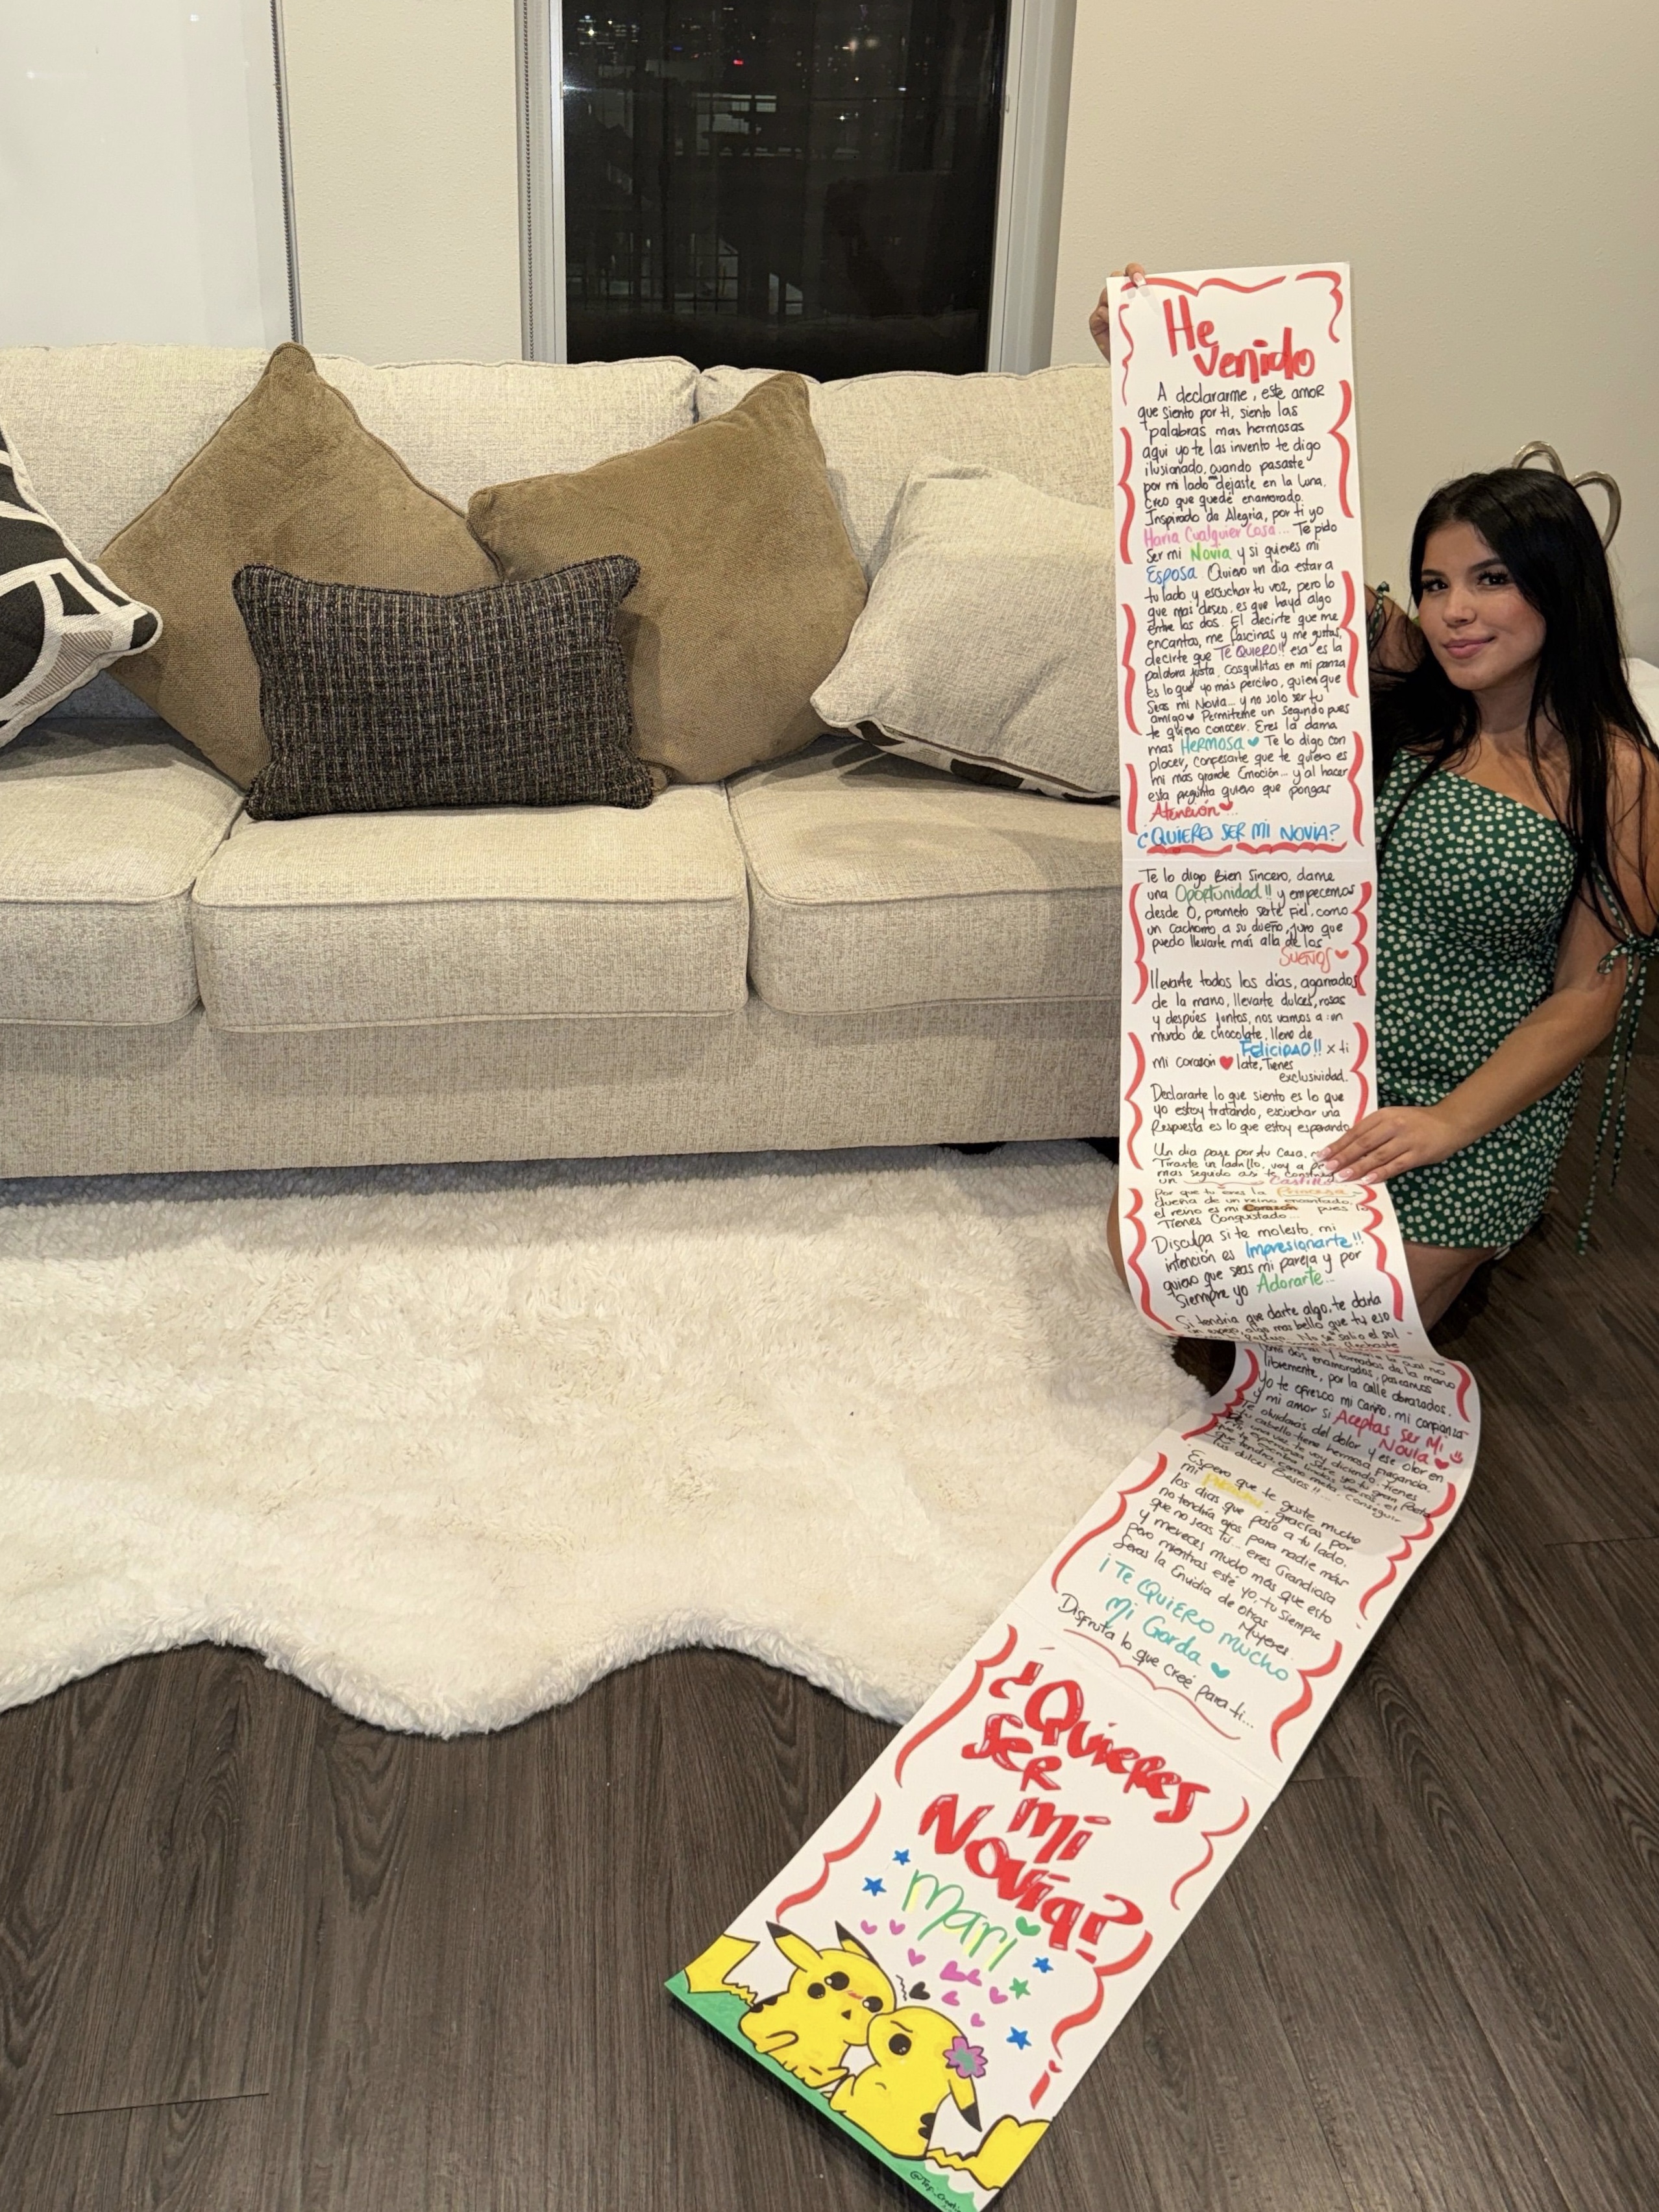 He
venido
A declararme, este amor
que siento por ti, siento las
palabras mas hermosas
aqui yo te las invento te digo
ilusionado, cuando pasaste
por mi lado me dejaste en la Luna,
Creo que quedé enamorado.
Inspirado de Alegria, por ti yo
Haria Cualquier Cosa... Te pido
Ser mi Novia y si quieres mi
Esposa Quiero un dia estar a
tu lado y escuchar tu voz, pero lo
que mas deseo, es que haya algo
entre los dos. El decirte que me
encantas, me fascinas y me gustas,
decirte que TE QUIERO!! esa es la
palabra justa, Cosquillitas en mi panza
es lo que yo más percibo, quien que
Seas mi Novia... y no solo ser tu
amigo Permiteme un segundo pues
te quiero conocer. Eres la dama
mas Hermosa Te lo digo con
placer, confesarte que te quiero es
mi más grande Emoción... y al hacer
esta pregunta quiero que pongas
Atención...
¿QUIERES SER MI NOVIA?
Te lo digo Bien Sincero, dame
una Oportunidad!! y empecemos
desde 0, prometo serte Fiel, como
un cachorro a su dueño, juro que
puedo llevarte más alla de los
SUEÑOS
llevarte todos los días, agarrados
de la mano, llevarte dulces, rosas
y despúes juntos, nos vamos a un
mundo de chocolate, lleno de
FELICIDAD!! x ti
mi corazón late, Tienes
exclusividad.
Declararte lo que siento es lo que
yo estoy tratando, escuchar una
Respuesta es lo que estoy esperando
Un dia pase por tu Casa,
Tiraste un ladrillo, voy a
mas seguido asi te
un Castillo
Por que tu eres la Princesa
dueña de un reino encantado,
el reino es mi Corazón pues lo
Tienes Conquistado...
Disculpa si te molesto, mi
intención es Impresionarte!!
quiero que seas mi pareja y por
Siempre yo Adorarte...
Si tendria que darte algo, te daria
un espejo, algo mas bello que tu eso
No se salio el sol
y tomados de la mano
dos enamorados, paseamos
libremente, por la calle abrazados.
Yo te ofrezco mi Cariño, mi confianza
y mi amor si Aceptas Ser Mi
Novia
Te olvidarás del dolor y ese olor en
tu cabello tiene hermosa fragancia.
De una vez te voy diciendo tienes
mi esperanza, sere yo tu gran Poeta
que te escriba lindos versos, el
que tendra, como meta, conseguir
tus dulces Besos!!...
Espero que te guste mucho
mi gracias por
los dias que paso a tu lado.
no tendría ojos para nadie más
que no seas tú... eres Grandiosa
y mereces mucho más que esto
pero mientras esté yo, tu siempre
Seras la Envidia de otras
Mujeres.
¡TE QUIERO mucho
mi Gorda
Disfruta lo que creé para ti...
¿QUIERES
SER
mi
NOVIA?
Mari